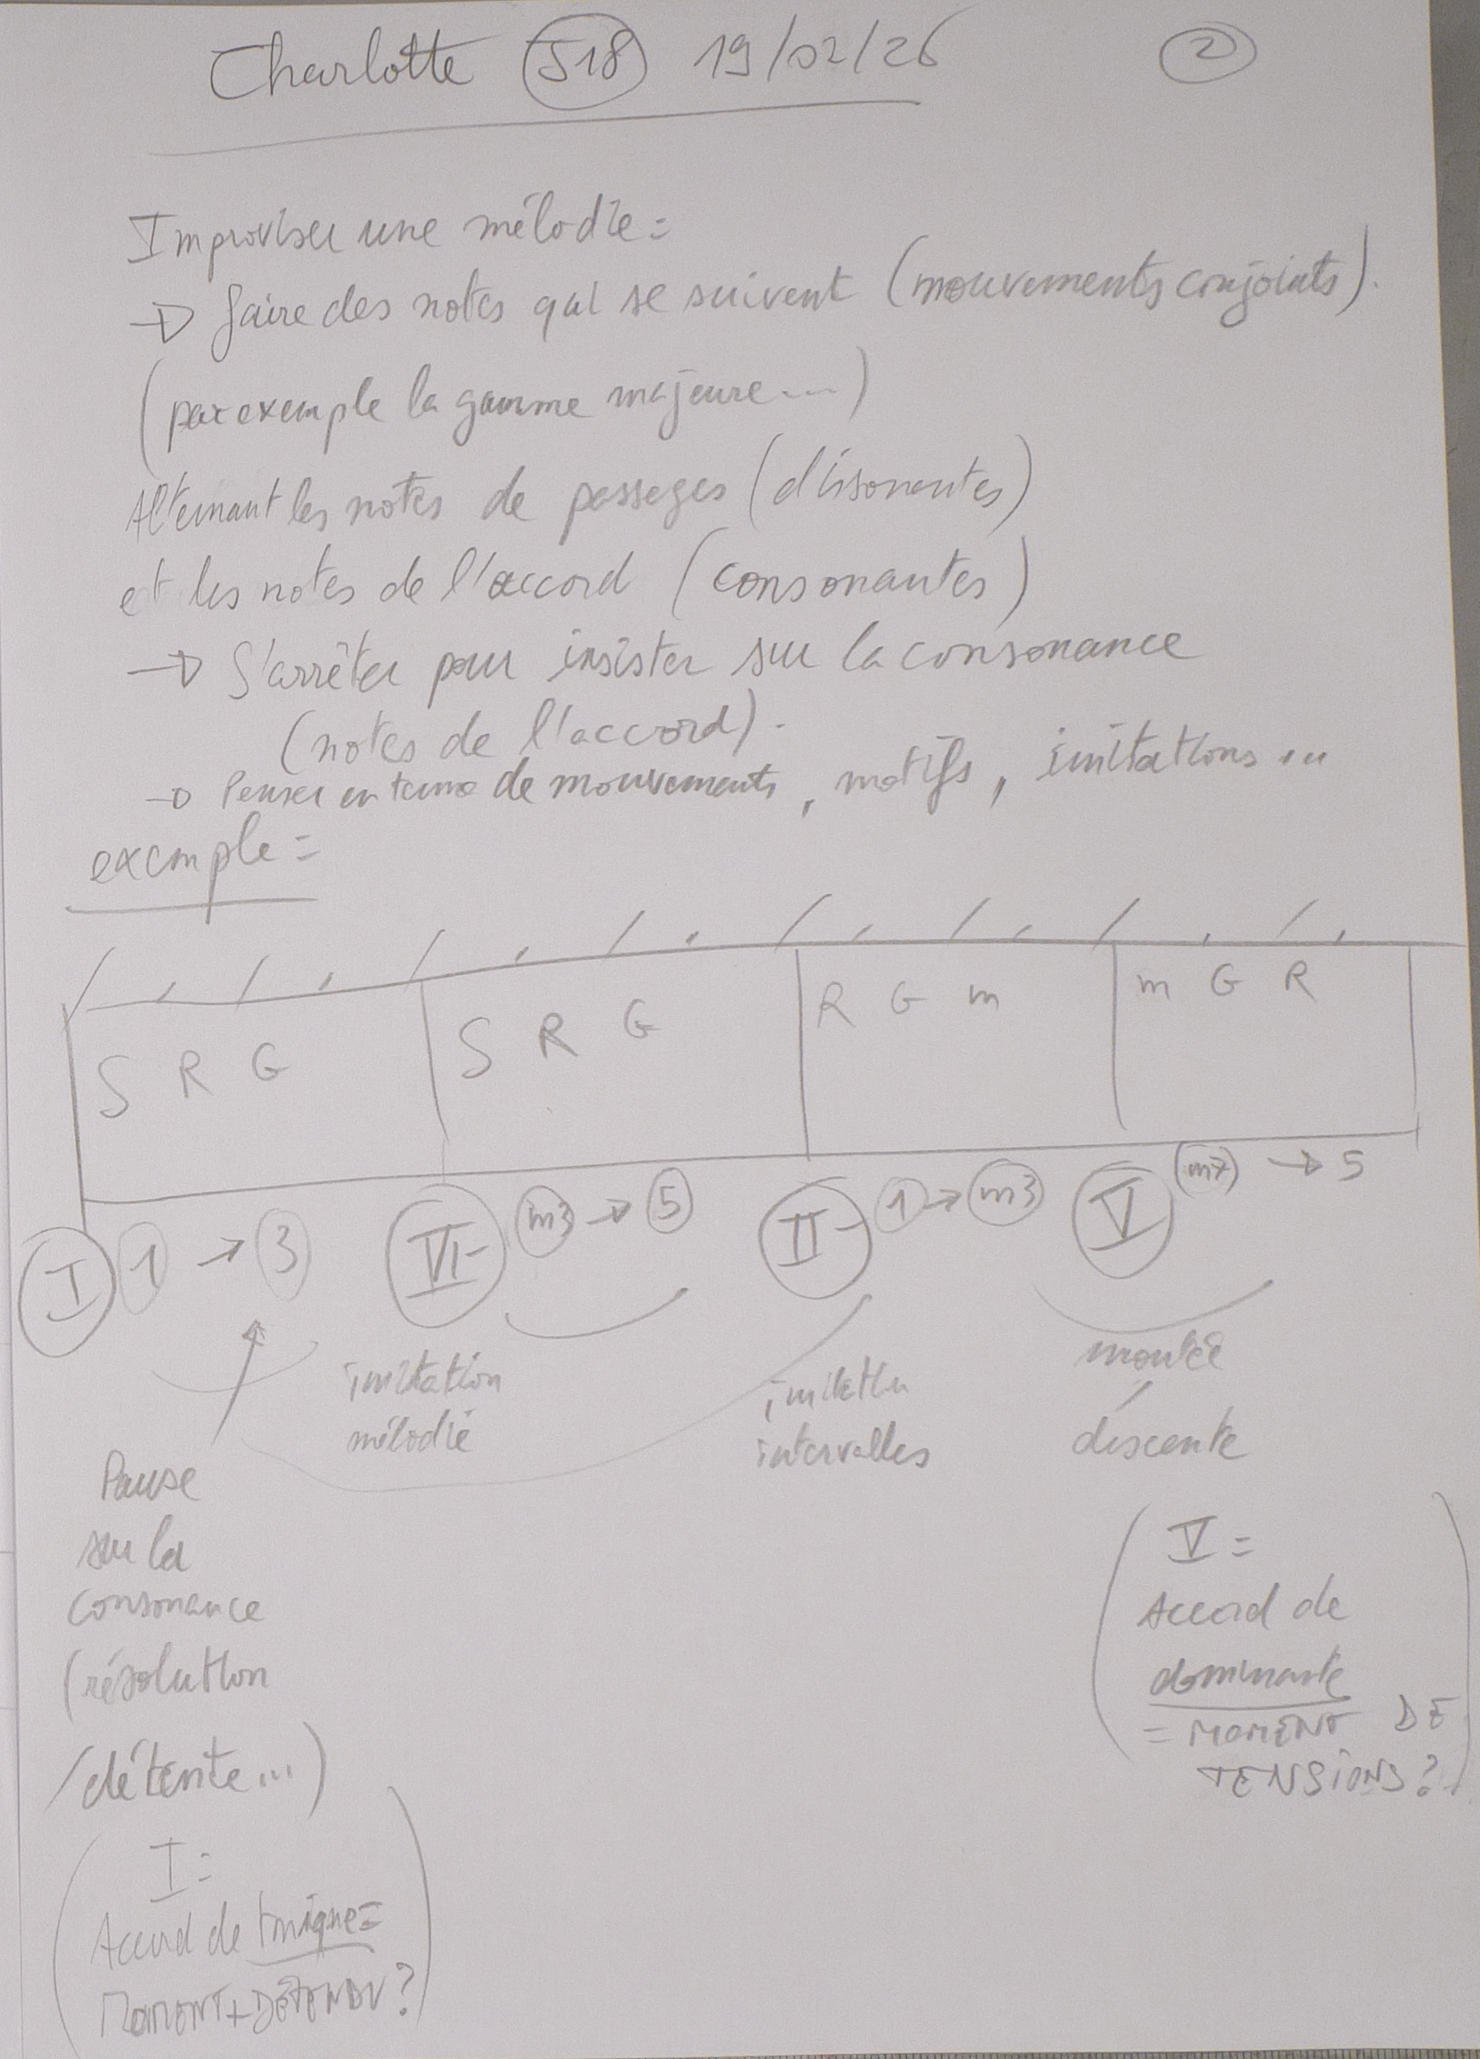 Charlotte S18 19/02/26 2
Improviser une mélodie =
→ faire des notes qui se suivent (mouvements conjoints).
(par exemple la gamme majeure...)
Alternant les notes de passages (dissonantes)
et les notes de l'accord (consonantes)
→ S'arrêter pour insister sur la consonance
(notes de l'accord).
→ Penser en terme de mouvements, motifs, imitations...
exemple =
/ , / , / , / , / , / , / , / ,
S R G S R G R G m m G R
I 1 → 3 VI- m3 → 5 II- 1 → m3 V m7 → 5
imitation
mélodie
imitation
intervalles
montée
/
descente
Pause
sur la
consonance
(résolution
/détente...)
(I =
Accord de tonique =
MOMENT + DÉTENDU ?)
(V =
Accord de
dominante
= MOMENT DE
TENSIONS ?)